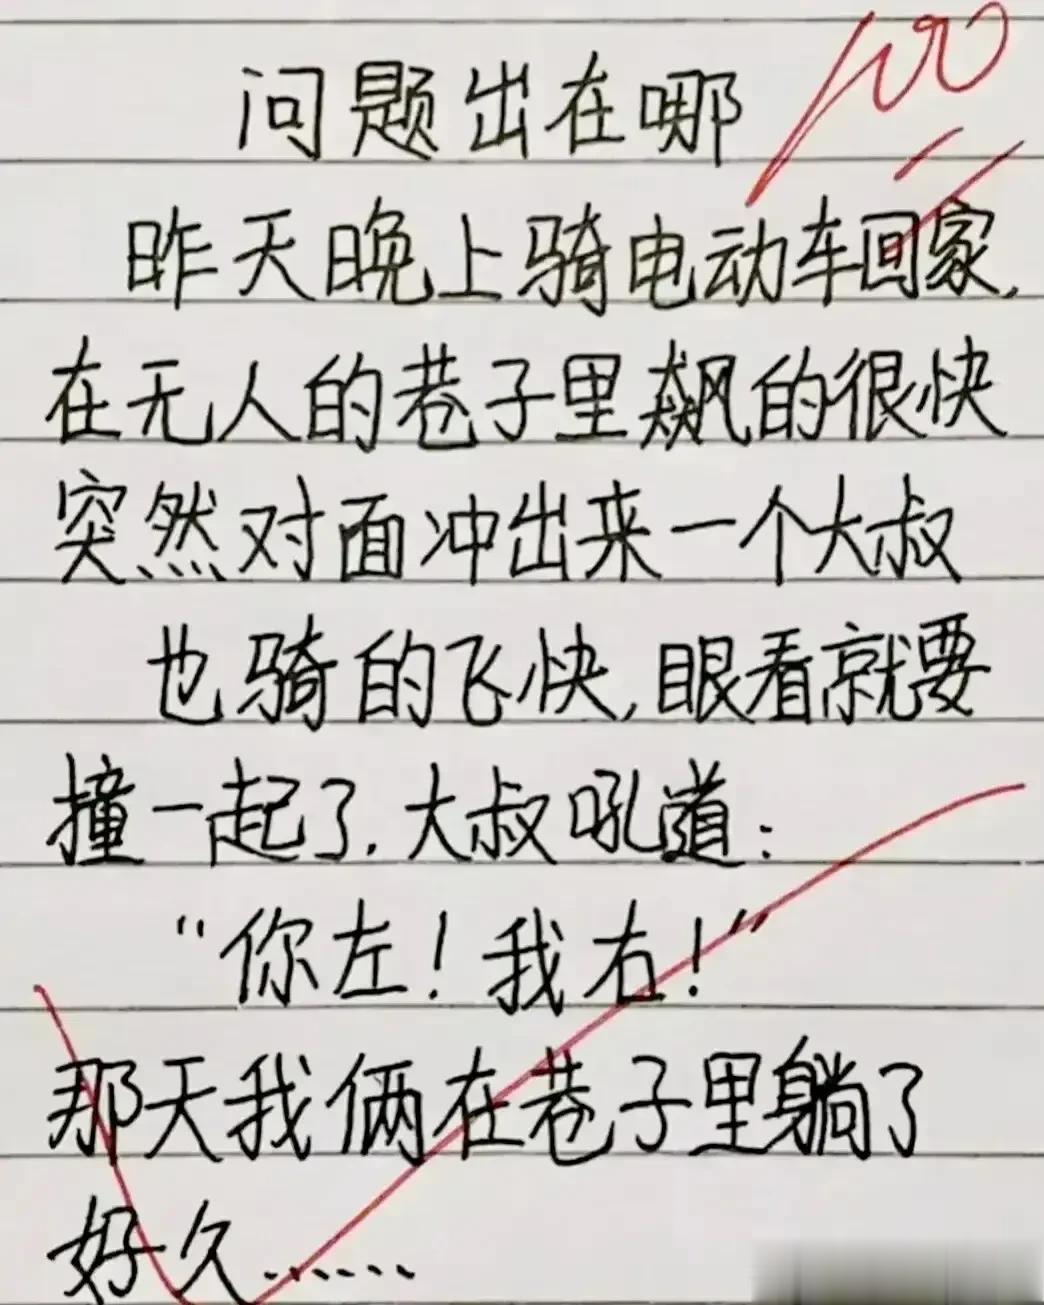 问题出在哪
100
昨天晚上骑电动车回家,
在无人的巷子里飙的很快
突然对面冲出来一个大叔
也骑的飞快,眼看就要
撞一起了.大叔吼道:
“你左!我右!”
那天我俩在巷子里躺了
好久......